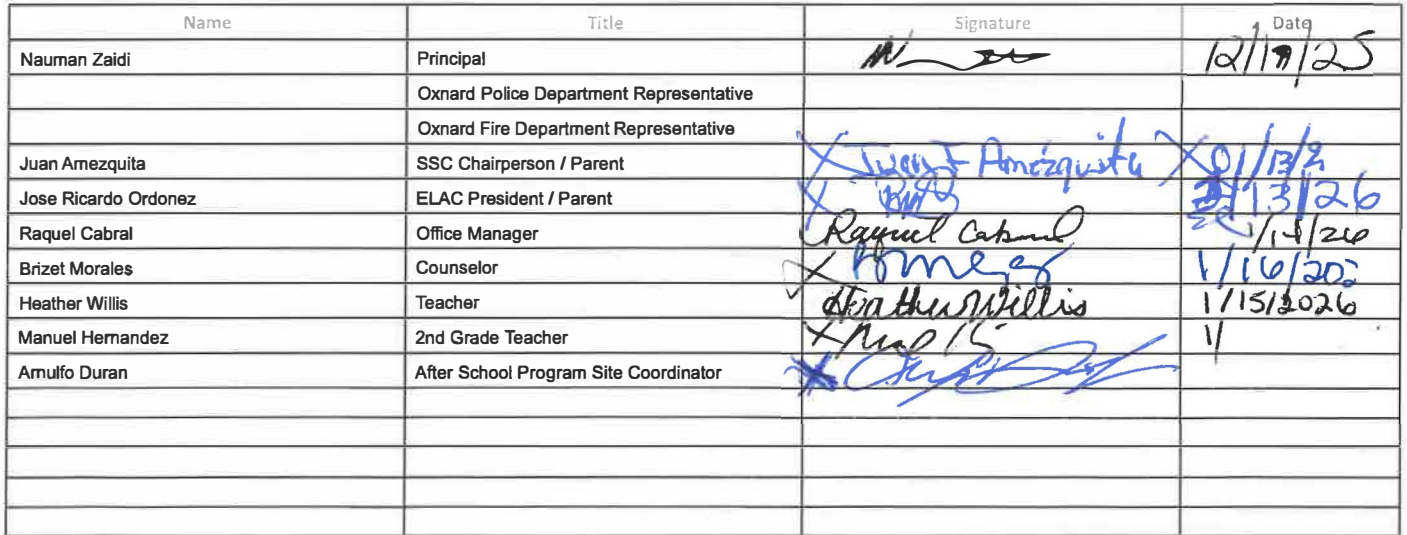 Name Title Signature Date
Nauman Zaidi Principal
Oxnard Police Department Representative
Oxnard Fire Department Representative
Juan Amezquita SSC Chairperson / Parent Juan F Amézquita 01/13/2
Jose Ricardo Ordonez ELAC President / Parent /13/26
Raquel Cabral Office Manager Raquel Cabral
Brizet Morales Counselor 1/16/202
Heather Willis Teacher Heather Willis 1/15/2026
Manuel Hernandez 2nd Grade Teacher
Arnulfo Duran After School Program Site Coordinator